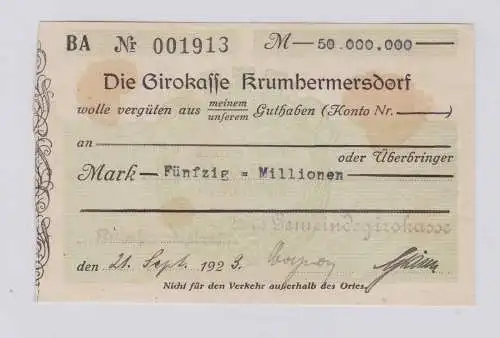 BA Nr 001913 M— 50.000.000—
Die Girokasse Krumhermersdorf
wolle vergüten aus meinem
unserem Guthaben (Konto Nr. ———)
an
oder Überbringer
Mark — Fünfzig = Millionen
Gemeindegirokasse
den 21. Sept. 1923.
Nicht für den Verkehr außerhalb des Ortes